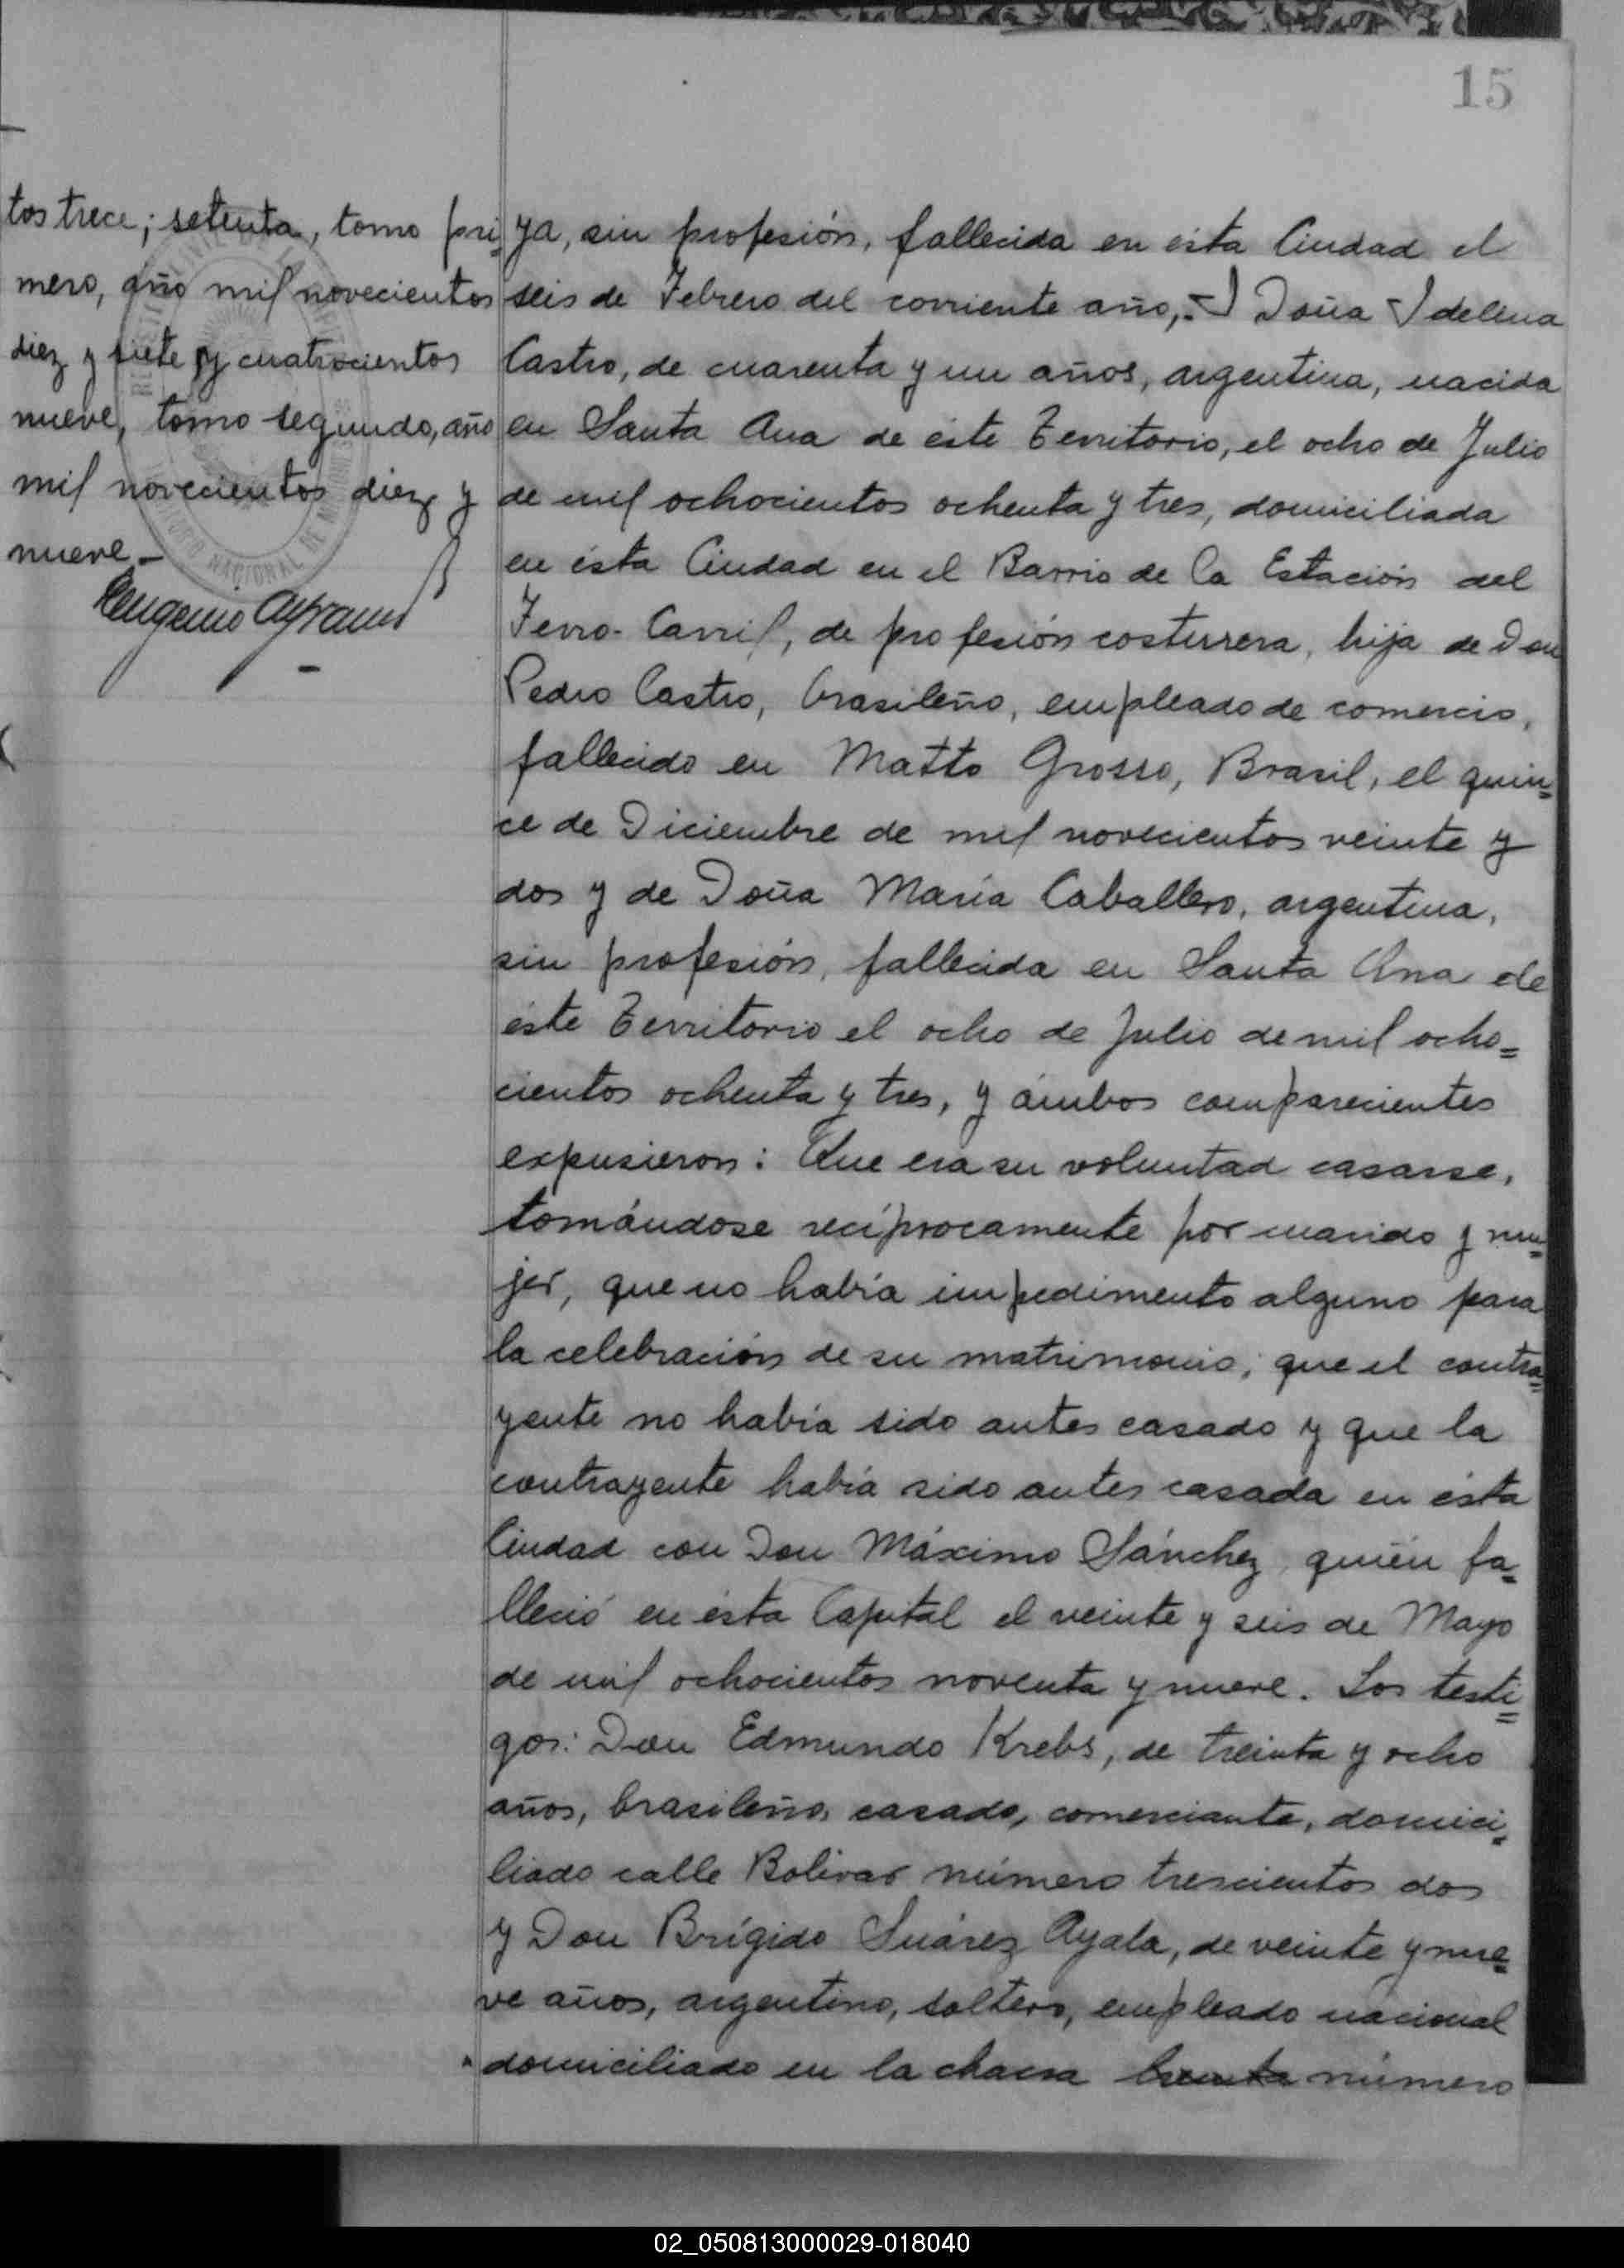 15
tos trece; setenta, tomo pri-
mero, año mil novecientos
diez y siete y cuatrocientos
nueve, tomo segundo, año
mil novecientos diez y
nueve.-
ya, sin profesión, fallecida en ésta Ciudad el
seis de Febrero del corriente año,.= y Doña Idelina
Castro, de cuarenta y un años, argentina, nacida
en Santa Ana de éste Territorio, el ocho de Julio
de mil ochocientos ochenta y tres, domiciliada
en ésta Ciudad en el Barrio de la Estación del
Ferro-Carril, de profesión costurera, hija de Don
Pedro Castro, brasileño, empleado de comercio,
fallecido en Matto Grosso, Brasil, el quin=
ce de Diciembre de mil novecientos veinte y
dos y de Doña María Caballero, argentina,
sin profesión, fallecida en Santa Ana de
éste Territorio el ocho de Julio de mil ocho=
cientos ochenta y tres, y ámbos comparecientes
expusieron: Que era su voluntad casarse,
tomándose recíprocamente por marido y mu=
jer, que no había impedimento alguno para
la celebración de su matrimonio; que el contra=
yente no había sido antes casado y que la
contrayente había sido antes casada en ésta
Ciudad con Don Máximo Sánchez, quién fa=
lleció en ésta Capital el veinte y seis de Mayo
de mil ochocientos noventa y nueve. Los testi=
gos: Don Edmundo Krebs, de treinta y ocho
años, brasileño, casado, comerciante, domici=
liado calle Bolivar número trescientos dos
y Don Brígido Suárez Ayala, de veinte y nue=
ve años, argentino, soltero, empleado nacional
domiciliado en la chacra número
02_050813000029-018040